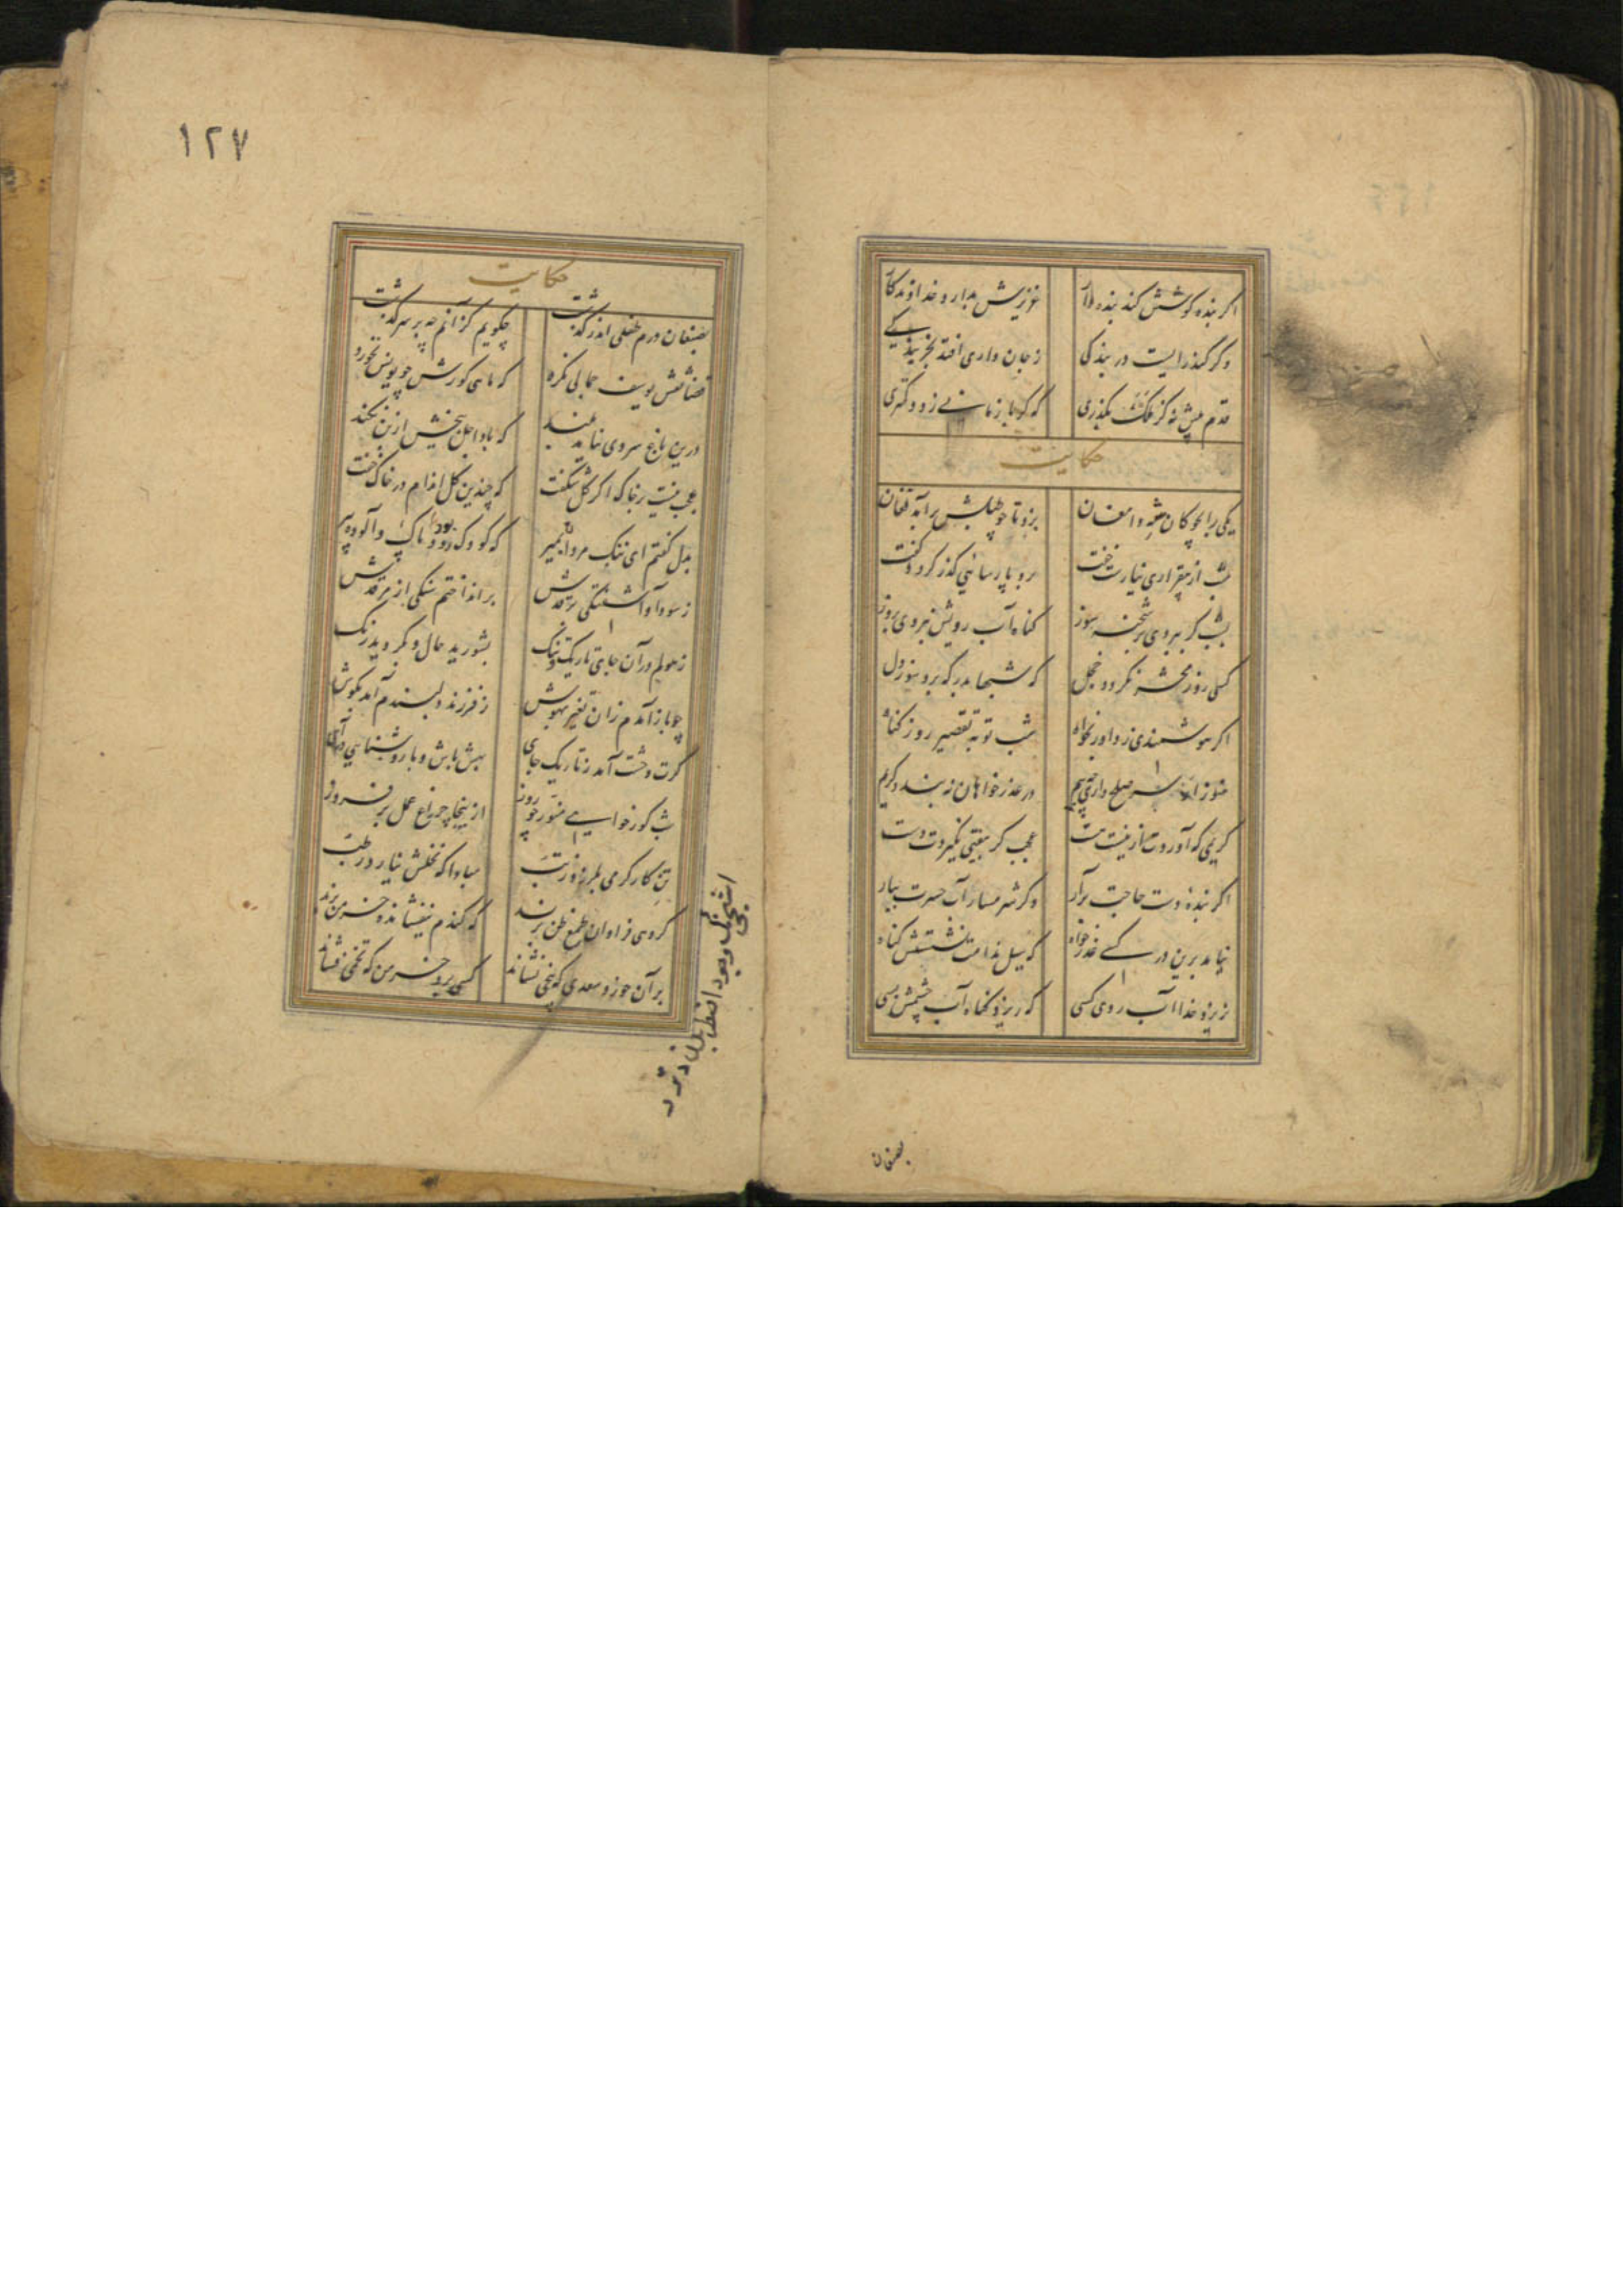 اگر بنده کوشش کند بنده وار عزیزش بدارد خداوندگار
وگر کند رایست در بندگی ز جان داری افتد بخربندگی
قدم پیش نه کز ملک بگذری که گر باز مانی ز دد کمتری
حکایت
یکی را بچوگان مه دامغان بزد تا چو طبلش برآمد فغان
شب از بیقراری نیارست خفت برو پارسائی گذر کرد و گفت
بشب گر ببردی بر شحنه سوز گناه آب رویش نبردی بروز
کسی روز محشر نگردد خجل که شبها بدرگه برد سوز دل
اگر هوشمندی ز داور بخواه شب توبه تقصیر روز گناه
هنوز از سر صلح داری چه بیم در عذر خواهان نه بندد کریم
کریمی که آوردت از نیست هست عجب گر بیفتی نگیردت دست
اگر بنده دست حاجت برآر وگر شرمسار آب حسرت ببار
نیامد برین در کسی عذر خواه که سیل ندامت نشستش گناه
نریزد خدا آب روی کسی که ریزد گناه آب چشمش بسی
بصنعان
١٢٧
حکایت
بصنعان درم طفلی اندر گذشت چگویم کز آنم چه بر سر گذشت
قضا نقش یوسف جمالی نکرد که ماهی گورش چو یونس نخورد
درین باغ سروی نیامد بلند که باد اجل بیخش از بن نکند
عجب نیست بر خاک اگر گل شکفت که چندین گل اندام در خاک خفت
بدل گفتم ای ننگ مردان بمیر که کودک رود پاک و آلوده پیر
ز سودا و آشفتگی بر قدش برانداختم سنگی از مرقدش
ز هولم در آن جای تاریک و تنگ بشورید حال و بگردید رنگ
چو باز آمدم زان تغیر بهوش ز فرزند دلبندم آمد بگوش
گرت وحشت آمد ز تاریک جای بهش باش و با روشنایی درآی
شب گور خواهی منور چو روز از اینجا چراغ عمل بر فروز
تن کارکن می بلرزد ز تب مبادا که نخلش نیارد رطب
گروهی فراوان طمع ظن برند که گندم نیفشانده خرمن برند
بر آن خورد سعدی که بیخی نشاند کسی برد خرمن که تخمی فشاند